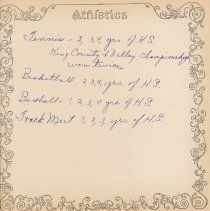 Athletics
Tennis - 2, 3, 4, yrs of H.S.
King County & Valley Championship
won twice
Basketball 2, 3, 4, yrs. of H.S.
Baseball - 1, 2, 3, 4 yrs of H.S.
Track Meet 1, 2, 3, yrs of H.S.